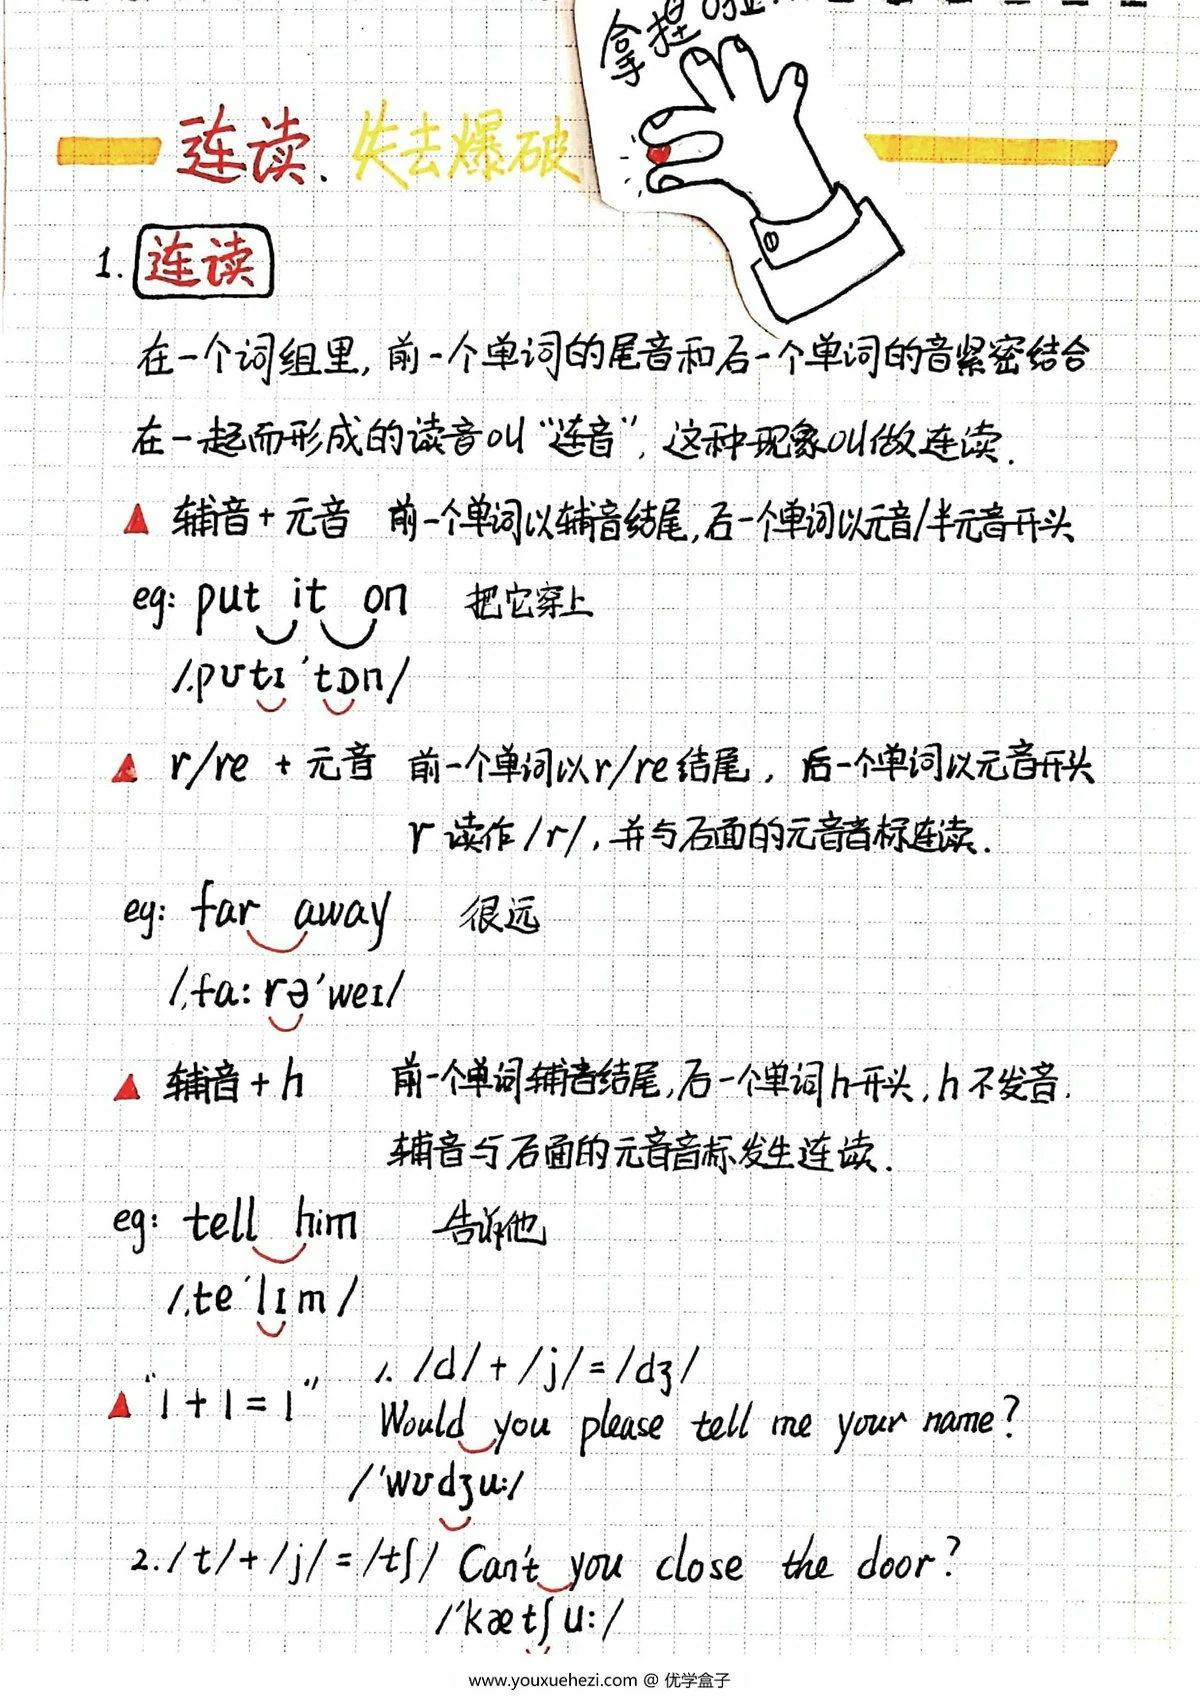 拿捏啦
连读. 失去爆破
1. 连读
在一个词组里, 前一个单词的尾音和后一个单词的音紧密结合
在一起而形成的读音叫“连音”, 这种现象叫做连读.
▲ 辅音+元音 前一个单词以辅音结尾,后一个单词以元音/半元音开头
eg: put it on 把它穿上
/ˌpʊtɪˈtɒn/
▲ r/re + 元音 前一个单词以r/re结尾, 后一个单词以元音开头
r 读作/r/, 并与后面的元音音标连读.
eg: far away 很远
/ˌfa:rəˈweɪ/
▲ 辅音+h 前一个单词辅音结尾,后一个单词h开头, h不发音.
辅音与后面的元音音标发生连读.
eg: tell him 告诉他
/ˌteˈlɪm/
▲ “1+1=1” 1. /d/+/j/=/dʒ/
Would you please tell me your name?
/ˈwʊdʒu:/
2. /t/+/j/=/tʃ/ Can't you close the door?
/ˈkætʃu:/
www.youxuehezi.com @ 优学盒子